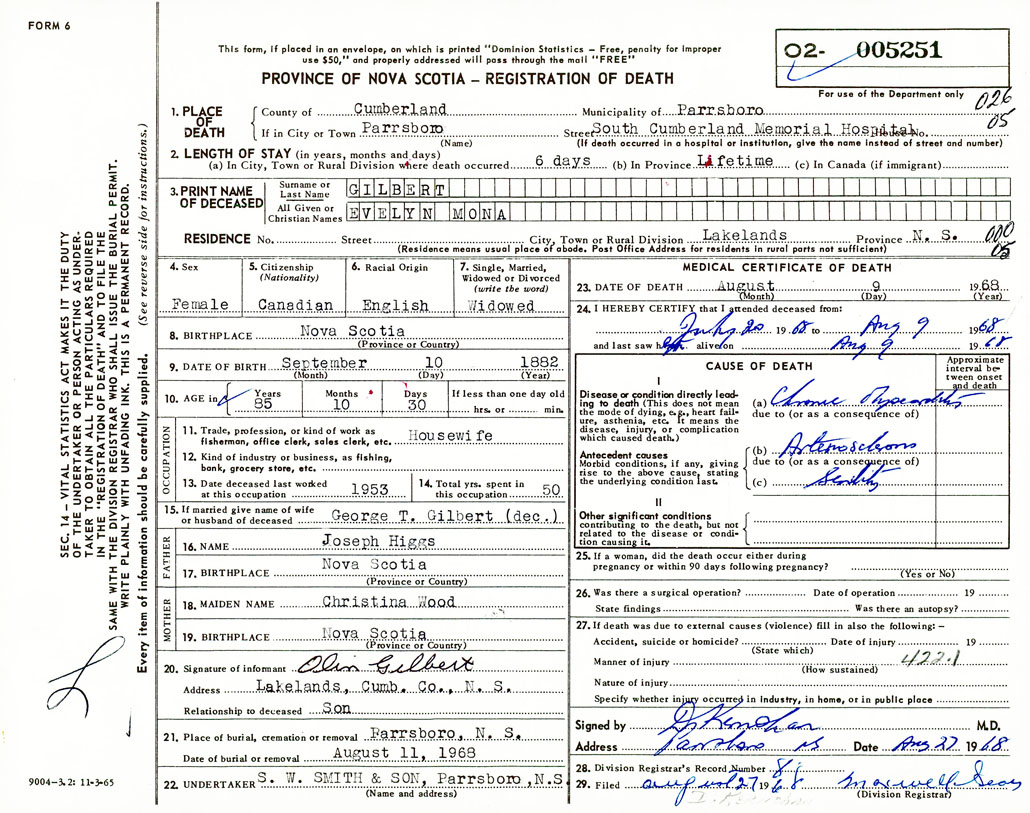 FORM 6
This form, if placed in an envelope, on which is printed "Dominion Statistics – Free, penalty for improper
use $50," and properly addressed will pass through the mail "FREE"
PROVINCE OF NOVA SCOTIA – REGISTRATION OF DEATH
O2- 005251
For use of the Department only
026
05
1. PLACE OF DEATH
County of Cumberland Municipality of Parrsboro
If in City or Town Parrsboro Street South Cumberland Memorial Hospital House No.
(Name) (If death occurred in a hospital or institution, give the name instead of street and number)
2. LENGTH OF STAY (in years, months and days)
(a) In City, Town or Rural Division where death occurred 6 days (b) In Province Lifetime (c) In Canada (if immigrant)
3. PRINT NAME OF DECEASED
Surname or Last Name GILBERT
All Given or Christian Names EVELYN MONA
RESIDENCE No. Street City, Town or Rural Division Lakelands Province N. S. 000
(Residence means usual place of abode. Post Office Address for residents in rural parts not sufficient) 05
4. Sex
Female
5. Citizenship
(Nationality)
Canadian
6. Racial Origin
English
7. Single, Married,
Widowed or Divorced
(write the word)
Widowed
8. BIRTHPLACE Nova Scotia
(Province or Country)
9. DATE OF BIRTH September 10 1882
(Month) (Day) (Year)
10. AGE in Years Months Days If less than one day old
85 10 30 hrs. or min.
OCCUPATION
11. Trade, profession, or kind of work as
fisherman, office clerk, sales clerk, etc. Housewife
12. Kind of industry or business, as fishing,
bank, grocery store, etc.
13. Date deceased last worked
at this occupation 1953
14. Total yrs. spent in
this occupation 50
15. If married give name of wife
or husband of deceased George T. Gilbert (dec.)
FATHER
16. NAME Joseph Higgs
17. BIRTHPLACE Nova Scotia
(Province or Country)
MOTHER
18. MAIDEN NAME Christina Wood
19. BIRTHPLACE Nova Scotia
(Province or Country)
20. Signature of informant Olin Gilbert
Address Lakelands, Cumb. Co., N. S.
Relationship to deceased Son
21. Place of burial, cremation or removal Parrsboro, N. S.
Date of burial or removal August 11, 1968
22. UNDERTAKER S. W. SMITH & SON, Parrsboro, N.S.
(Name and address)
MEDICAL CERTIFICATE OF DEATH
23. DATE OF DEATH August 9 1968
(Month) (Day) (Year)
24. I HEREBY CERTIFY that I attended deceased from:
July 20 1968 to Aug 9 1968
and last saw her alive on Aug 9 1968
CAUSE OF DEATH
Approximate
interval be-
tween onset
and death
I
Disease or condition directly lead-
ing to death (This does not mean
the mode of dying, e.g., heart fail-
ure, asthenia, etc. It means the
disease, injury, or complication
which caused death.)
(a) Chronic Myocarditis
due to (or as a consequence of)
Antecedent causes
Morbid conditions, if any, giving
rise to the above cause, stating
the underlying condition last.
(b) Arteriosclerosis
due to (or as a consequence of)
(c) Senility
II
Other significant conditions
contributing to the death, but not
related to the disease or condi-
tion causing it.
25. If a woman, did the death occur either during
pregnancy or within 90 days following pregnancy?
(Yes or No)
26. Was there a surgical operation? Date of operation 19
State findings Was there an autopsy?
27. If death was due to external causes (violence) fill in also the following: –
Accident, suicide or homicide? Date of injury 19
(State which)
Manner of injury 422.1
(How sustained)
Nature of injury
Specify whether injury occurred in industry, in home, or in public place
Signed by M.D.
Address Parrsboro NS Date Aug 27 1968
28. Division Registrar's Record Number
29. Filed august 27 1968 Maxwell
(Division Registrar)
SEC. 14 – VITAL STATISTICS ACT MAKES IT THE DUTY
OF THE UNDERTAKER OR PERSON ACTING AS UNDER-
TAKER TO OBTAIN ALL THE PARTICULARS REQUIRED
IN THE "REGISTRATION OF DEATH" AND TO FILE THE
SAME WITH THE DIVISION REGISTRAR WHO SHALL ISSUE THE BURIAL PERMIT.
WRITE PLAINLY WITH UNFADING INK. THIS IS A PERMANENT RECORD.
Every item of information should be carefully supplied. (See reverse side for instructions.)
9004-3.2: 11-3-65